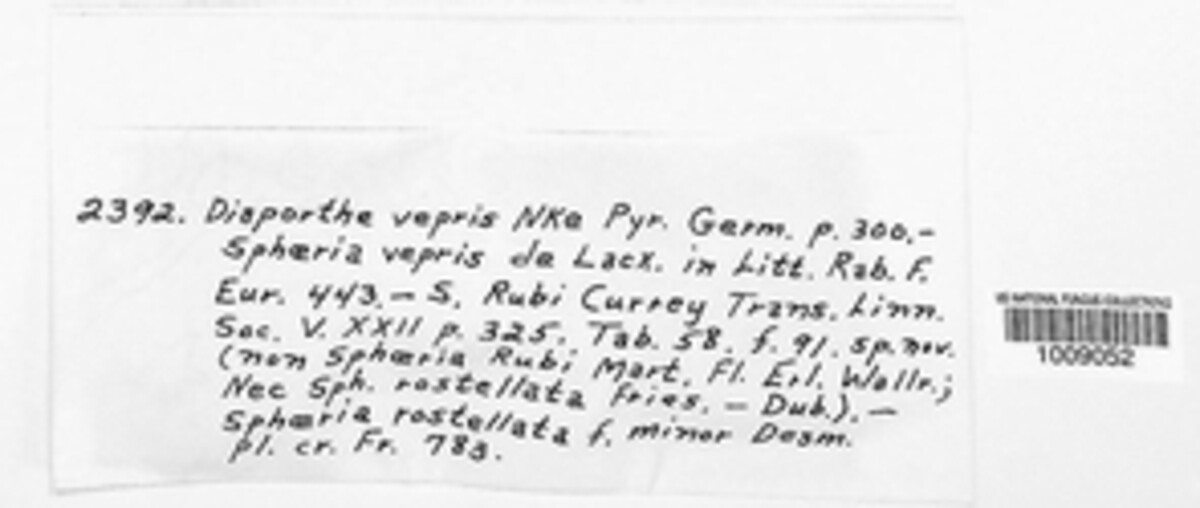 2392. Diaporthe vepris Nke Pyr. Germ. p. 300.—
Sphæria vepris de Lacx. in Litt. Rab. F.
Eur. 443.— S. Rubi Currey Trans. Linn.
Soc. V. XXII p. 325. Tab. 58. f. 91. sp. nov.
(non Sphæria Rubi Mart. Fl. Erl. Wallr.;
Nec Sph. rostellata Fries. — Dub.). —
Sphæria rostellata f. minor Desm.
pl. cr. Fr. 783.
US NATIONAL FUNGUS COLLECTIONS
1009052